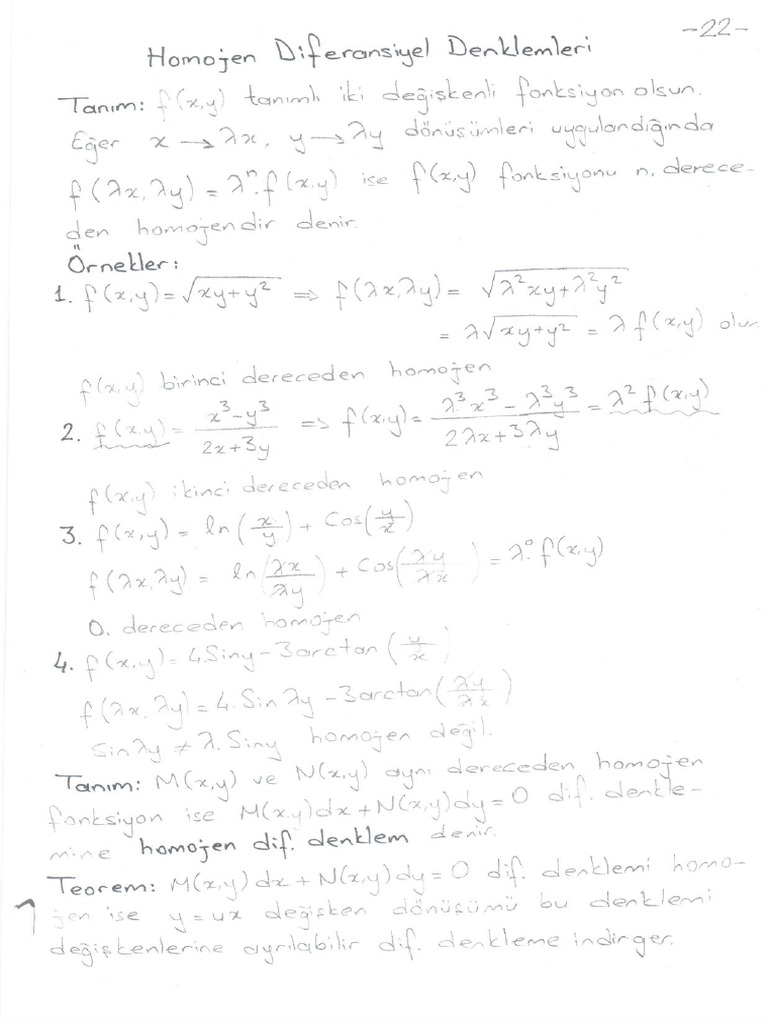 -22-
Homojen Diferansiyel Denklemleri
Tanım: f(x,y) tanımlı iki değişkenli fonksiyon olsun.
Eğer x → λx, y → λy dönüşümleri uygulandığında
f(λx,λy) = λⁿ.f(x,y) ise f(x,y) fonksiyonu n. derece-
den homojendir denir.
Örnekler:
1. f(x,y) = √(xy+y²) ⇒ f(λx,λy) = √(λ²xy+λ²y²)
= λ√(xy+y²) = λ f(x,y) olur
f(x,y) birinci dereceden homojen
2. f(x,y) = (x³-y³)/(2x+3y) ⇒ f(x,y) = (λ³x³ - λ³y³)/(2λx+3λy) = λ² f(x,y)
f(x,y) ikinci dereceden homojen
3. f(x,y) = ln(x/y) + Cos(y/x)
f(λx,λy) = ln(λx/λy) + Cos(λy/λx) = λ⁰. f(x,y)
0. dereceden homojen
4. f(x,y) = 4Siny - 3arctan(y/x)
f(λx,λy) = 4.Sinλy - 3arctan(λy/λx)
Sinλy ≠ λ.Siny homojen değil.
Tanım: M(x,y) ve N(x,y) aynı dereceden homojen
fonksiyon ise M(x,y)dx + N(x,y)dy = 0 dif. denkle-
mine homojen dif. denklem denir.
Teorem: M(x,y)dx + N(x,y)dy = 0 dif. denklemi homo-
jen ise y = ux değişken dönüşümü bu denklemi
değişkenlerine ayrılabilir dif. denkleme indirger.